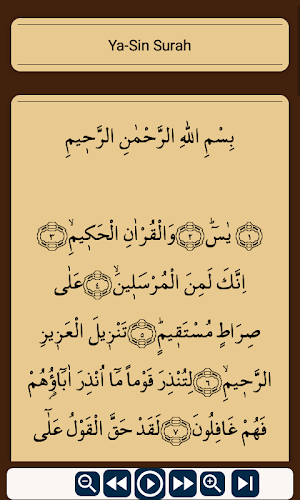 Ya-Sin Surah
بِسْمِ اللهِ الرَّحْمٰنِ الرَّحٖيمِ
﴿١﴾ يٰسٓۜ ﴿٢﴾ وَالْقُرْاٰنِ الْحَكٖيمِۙ ﴿٣﴾
اِنَّكَ لَمِنَ الْمُرْسَلٖينَۙ ﴿٤﴾ عَلٰى
صِرَاطٍ مُسْتَقٖيمٍۜ ﴿٥﴾ تَنْزٖيلَ الْعَزٖيزِ
الرَّحٖيمِۙ ﴿٦﴾ لِتُنْذِرَ قَوْماً مَٓا اُنْذِرَ اٰبَٓاؤُ۬هُمْ
فَهُمْ غَافِلُونَ ﴿٧﴾ لَقَدْ حَقَّ الْقَوْلُ عَلٰٓى